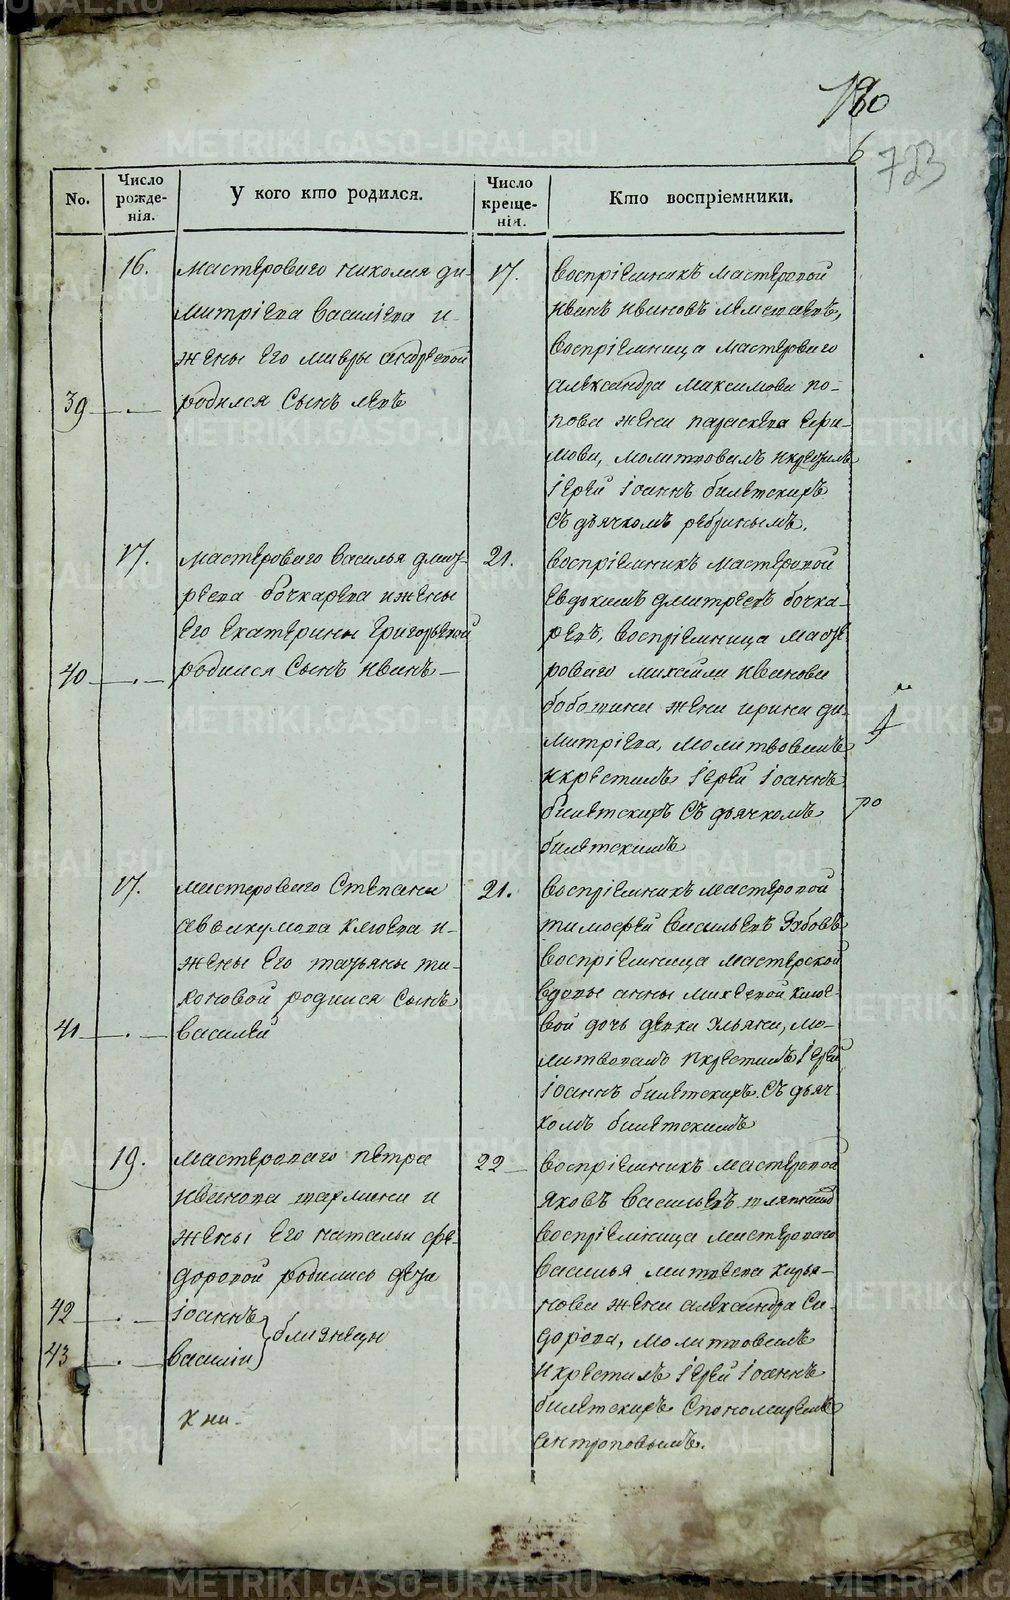 180
6
723
No.
Число рожде-нія.
У кого кто родился.
Число креще-нія.
Кто воспріемники.
16.
мастероваго николая ди-
митріева василіева и
жены его мавры андреевой
39
родился сынъ левъ
17.
воспріемникъ мастеровой
иванъ ивановъ
воспріемница мастероваго
александра максимова по-
пова жена параскева ефи-
мова, молитвовалъ и крестилъ
іерей іоаннъ билетскиръ
съ дьячкомъ ребринымъ.
17.
мастероваго василья дмит-
реева бочкарева и жены
его екатерины григорьевой
40
родился сынъ иванъ
21.
воспріемникъ мастеровой
евдокимъ дмитреевъ бочка-
ревъ, воспріемница масте
роваго михайла иванова
жена ирина ди-
митріева, молитвовалъ
и крестилъ іерей іоаннъ
билетскиръ съ дьячкомъ
билетскимъ
ро
17.
мастероваго степана
аввакумова клюева и
жены его татьяны ти-
хоновой родился сынъ
41
василей
21.
воспріемникъ мастеровой
тимофей васильевъ зубовъ
воспріемница мастерской
вдовы анны михеевой клюе-
вой дочь девка ульяна, мо-
литвовалъ и крестилъ іерей
іоаннъ билетскиръ съ дьяч
комъ билетскимъ
19.
мастероваго петра
иванова и
жены его натальи фе-
доровой родились два
42
іоаннъ
43
василіи
близнецы
22
воспріемникъ мастеровой
яковъ васильевъ
воспріемница мастероваго
василья митвеева кирья-
нова жена александра си-
дорова, молитвовалъ
и крестилъ іерей іоаннъ
билетскиръ с пономаремъ
антроповымъ.
METRIKI.GASO-URAL.RU